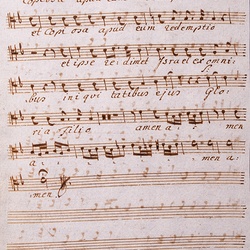 copiosa apud
et copi osa apud eum redemptio
et ipse re: dimet Israel ex omni:
bus ini qui tatibus ejus Glo:
ria filio amen a: men
a: i: men a:
men